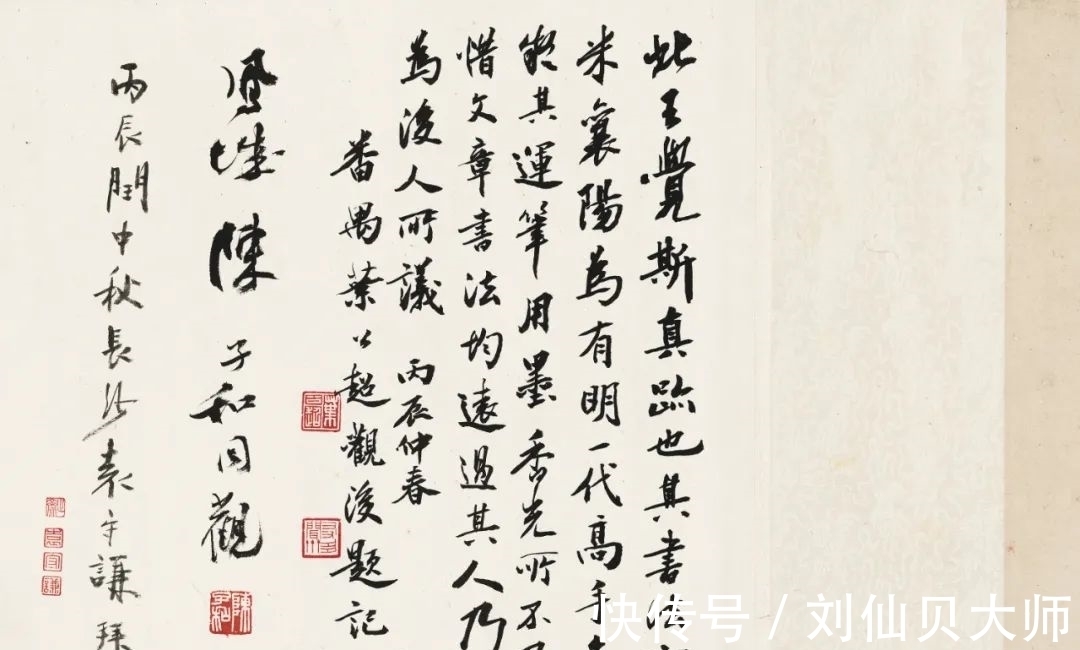 此王覺斯真跡也其書法
米襄陽為有明一代高手
觀其運筆用墨香光所不及
惜文章書法均遠過其人乃
為後人所議 丙辰仲春
番禺葉公超觀後題記
陳子和同觀
丙辰閏中秋長沙袁守謙拜
葉公超
陳子和
袁守謙
快传号 / 刘仙贝大师